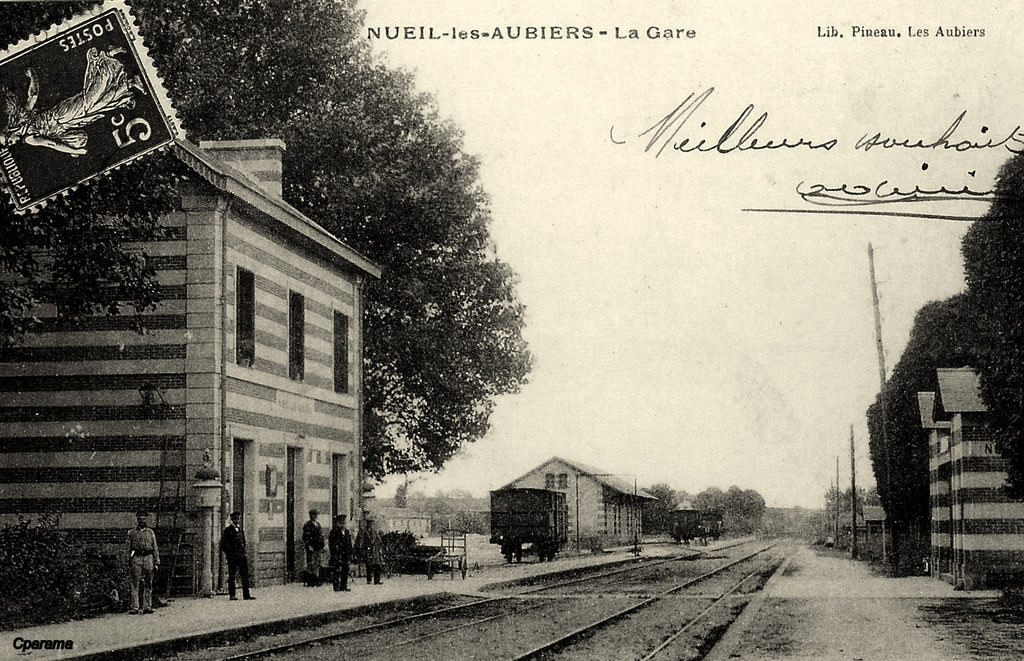 NUEIL-les-AUBIERS - La Gare
Lib. Pineau. Les Aubiers
POSTES
5c
REPUBLIQUE
Meilleurs souhaits
Cparama